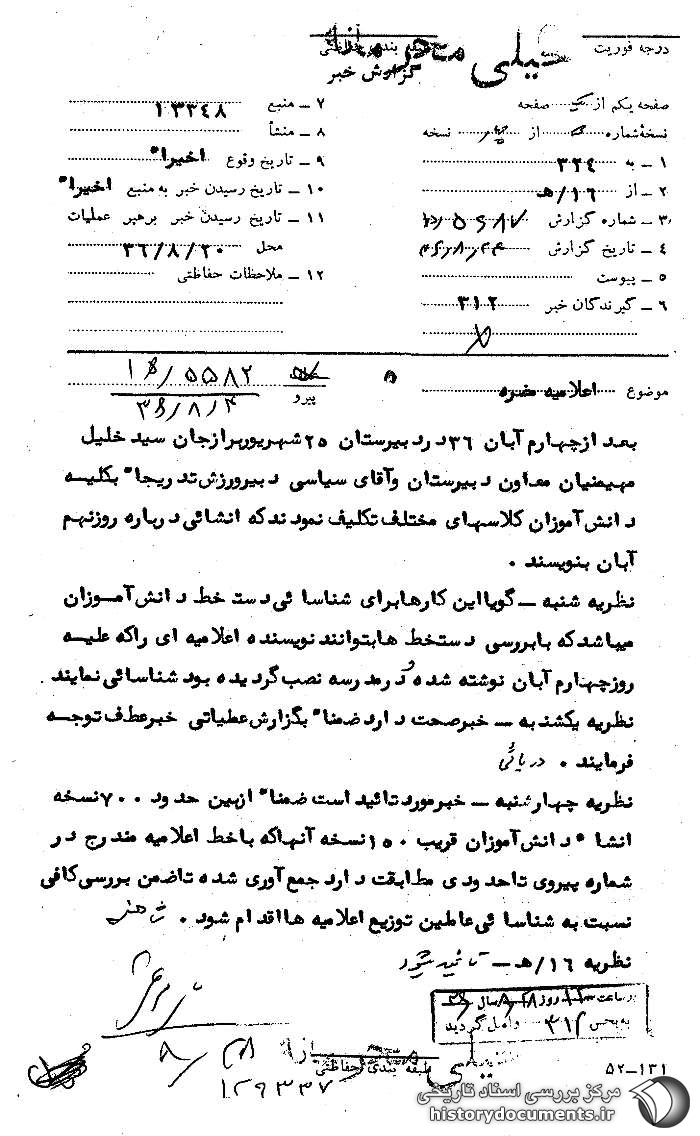 درجه فوریت
طبقه بندی حفاظتی
خیلی محرمانه
گزارش خبر
صفحه یکم از یک صفحه
نسخه شماره از نسخه
۱ – به ۳۲۴
۲ – از ۱۶/هـ
۳ – شماره گزارش
۴ – تاریخ گزارش
۵ – پیوست
۶ – گیرندگان خبر ۳۱۲
۷ – منبع ۱۳۳۴۸
۸ – منشأ
۹ – تاریخ وقوع اخیرا"
۱۰ – تاریخ رسیدن خبر به منبع اخیرا"
۱۱ – تاریخ رسیدن خبر برهبر عملیات
محل ۳۶/۸/۲۰
۱۲ – ملاحظات حفاظتی
موضوع اعلامیه مضره
پیرو ۱۶/۵۵۸۲
۳۶/۸/۴
بعد از چهارم آبان ۳۶ در دبیرستان ۲۵ شهریور برازجان سید خلیل
مهیمنیان معاون دبیرستان وآقای سیاسی دبیرورزش تدریجا" بکلیه
دانش آموزان کلاسهای مختلف تکلیف نمودند که انشائی درباره روزنهم
آبان بنویسند .
نظریه شنبه – گویا این کارها برای شناسائی دست خط دانش آموزان
میباشد که با بررسی دستخط ها بتوانند نویسنده اعلامیه ای راکه علیه
روز چهارم آبان نوشته شده و در مدرسه نصب گردیده بود شناسائی نمایند .
نظریه یکشنبه – خبر صحت دارد ضمنا" بگزارش عملیاتی خبر عطف توجه
فرمایند . دریائی
نظریه چهارشنبه – خبر مورد تائید است ضمنا" از بین حدود ۷۰۰ نسخه
انشاء دانش آموزان قریب ۱۵۰ نسخه آنها که با خط اعلامیه مندرج در
شماره پیروی تا حدودی مطابقت دارد جمع آوری شده تا ضمن بررسی کافی
نسبت به شناسائی عاملین توزیع اعلامیه ها اقدام شود .
نظریه ۱۶/هـ – تائید میشود
در ساعت روز سال ۳۶
به بخش ۳۱۲ واصل گردید
۸/۲۸
۱۲۹۳۳۷
طبقه بندی حفاظتی
خیلی محرمانه
۵۲–۱۳۱
مرکز بررسی اسناد تاریخی
historydocuments.ir